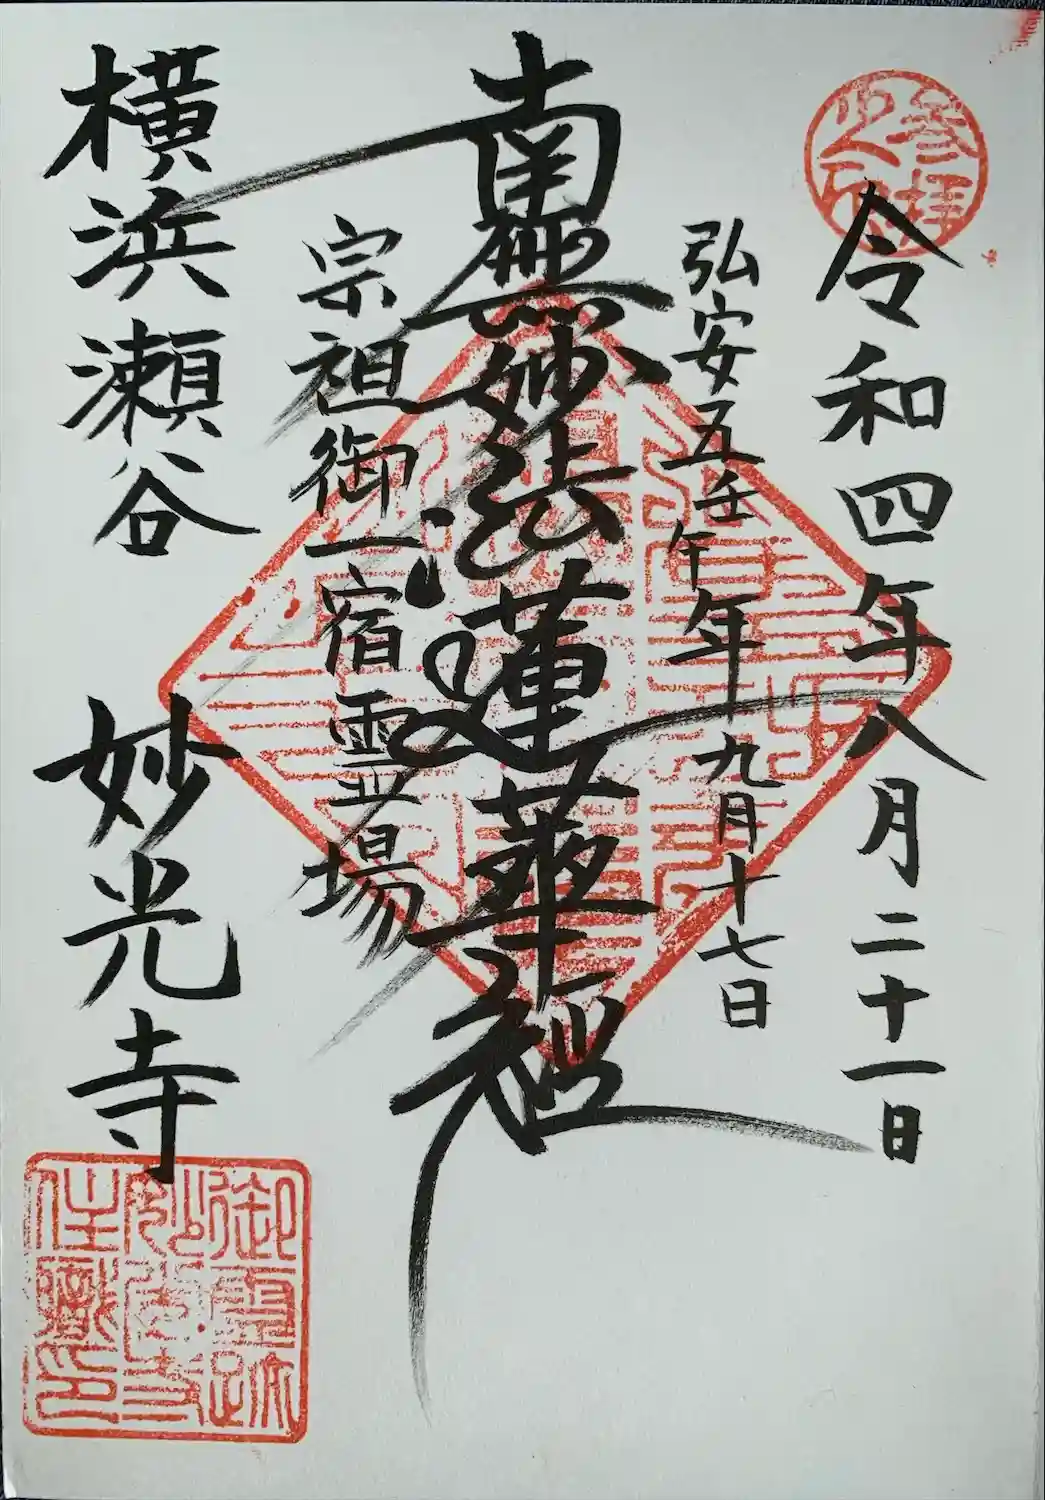 参拝之証
令和四年八月二十一日
弘安五壬午年九月十七日
南無妙法蓮華経
宗祖御一宿霊場
横浜瀬谷 妙光寺
御霊跡
妙光寺
住職印